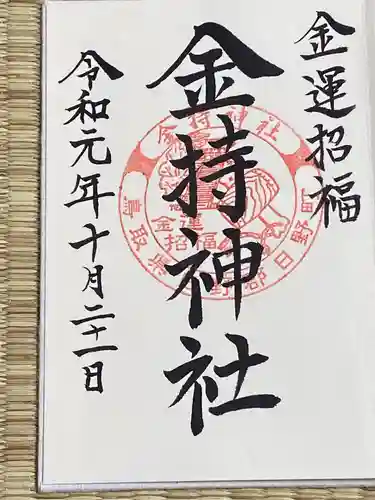 金運招福
金持神社
令和元年十月二十一日
金持神社
金運
招福
鳥取県日野郡日野町